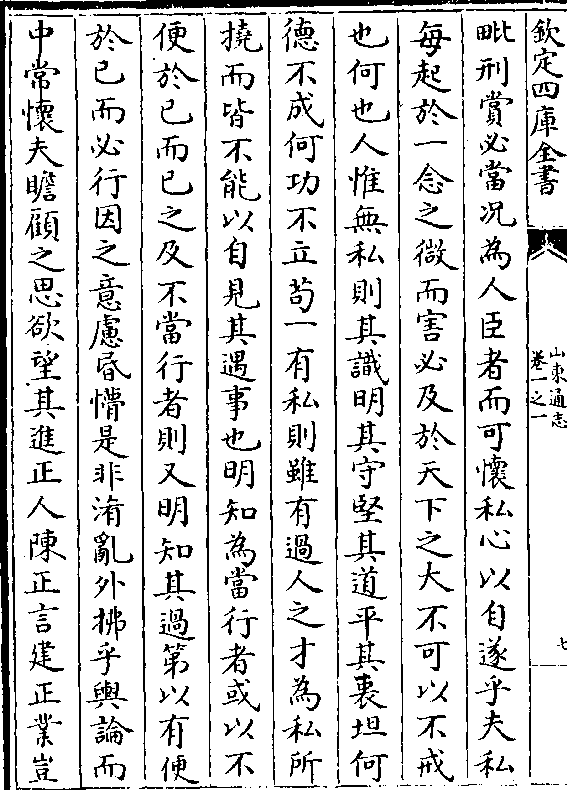 欽定四庫全書
山東通志
卷一之一
七
毗刑賞必當况為人臣者而可懷私心以自遂乎夫私
每起於一念之微而害必及於天下之大不可以不戒
也何也人惟無私則其識明其守堅其道平其衷坦何
德不成何功不立苟一有私則雖有過人之才為私所
撓而皆不能以自見其遇事也明知為當行者或以不
便於已而已之及不當行者則又明知其過第以有便
於已而必行因之意慮昏懵是非淆亂外拂乎輿論而
中常懷夫瞻顧之思欲望其進正人陳正言建正業豈